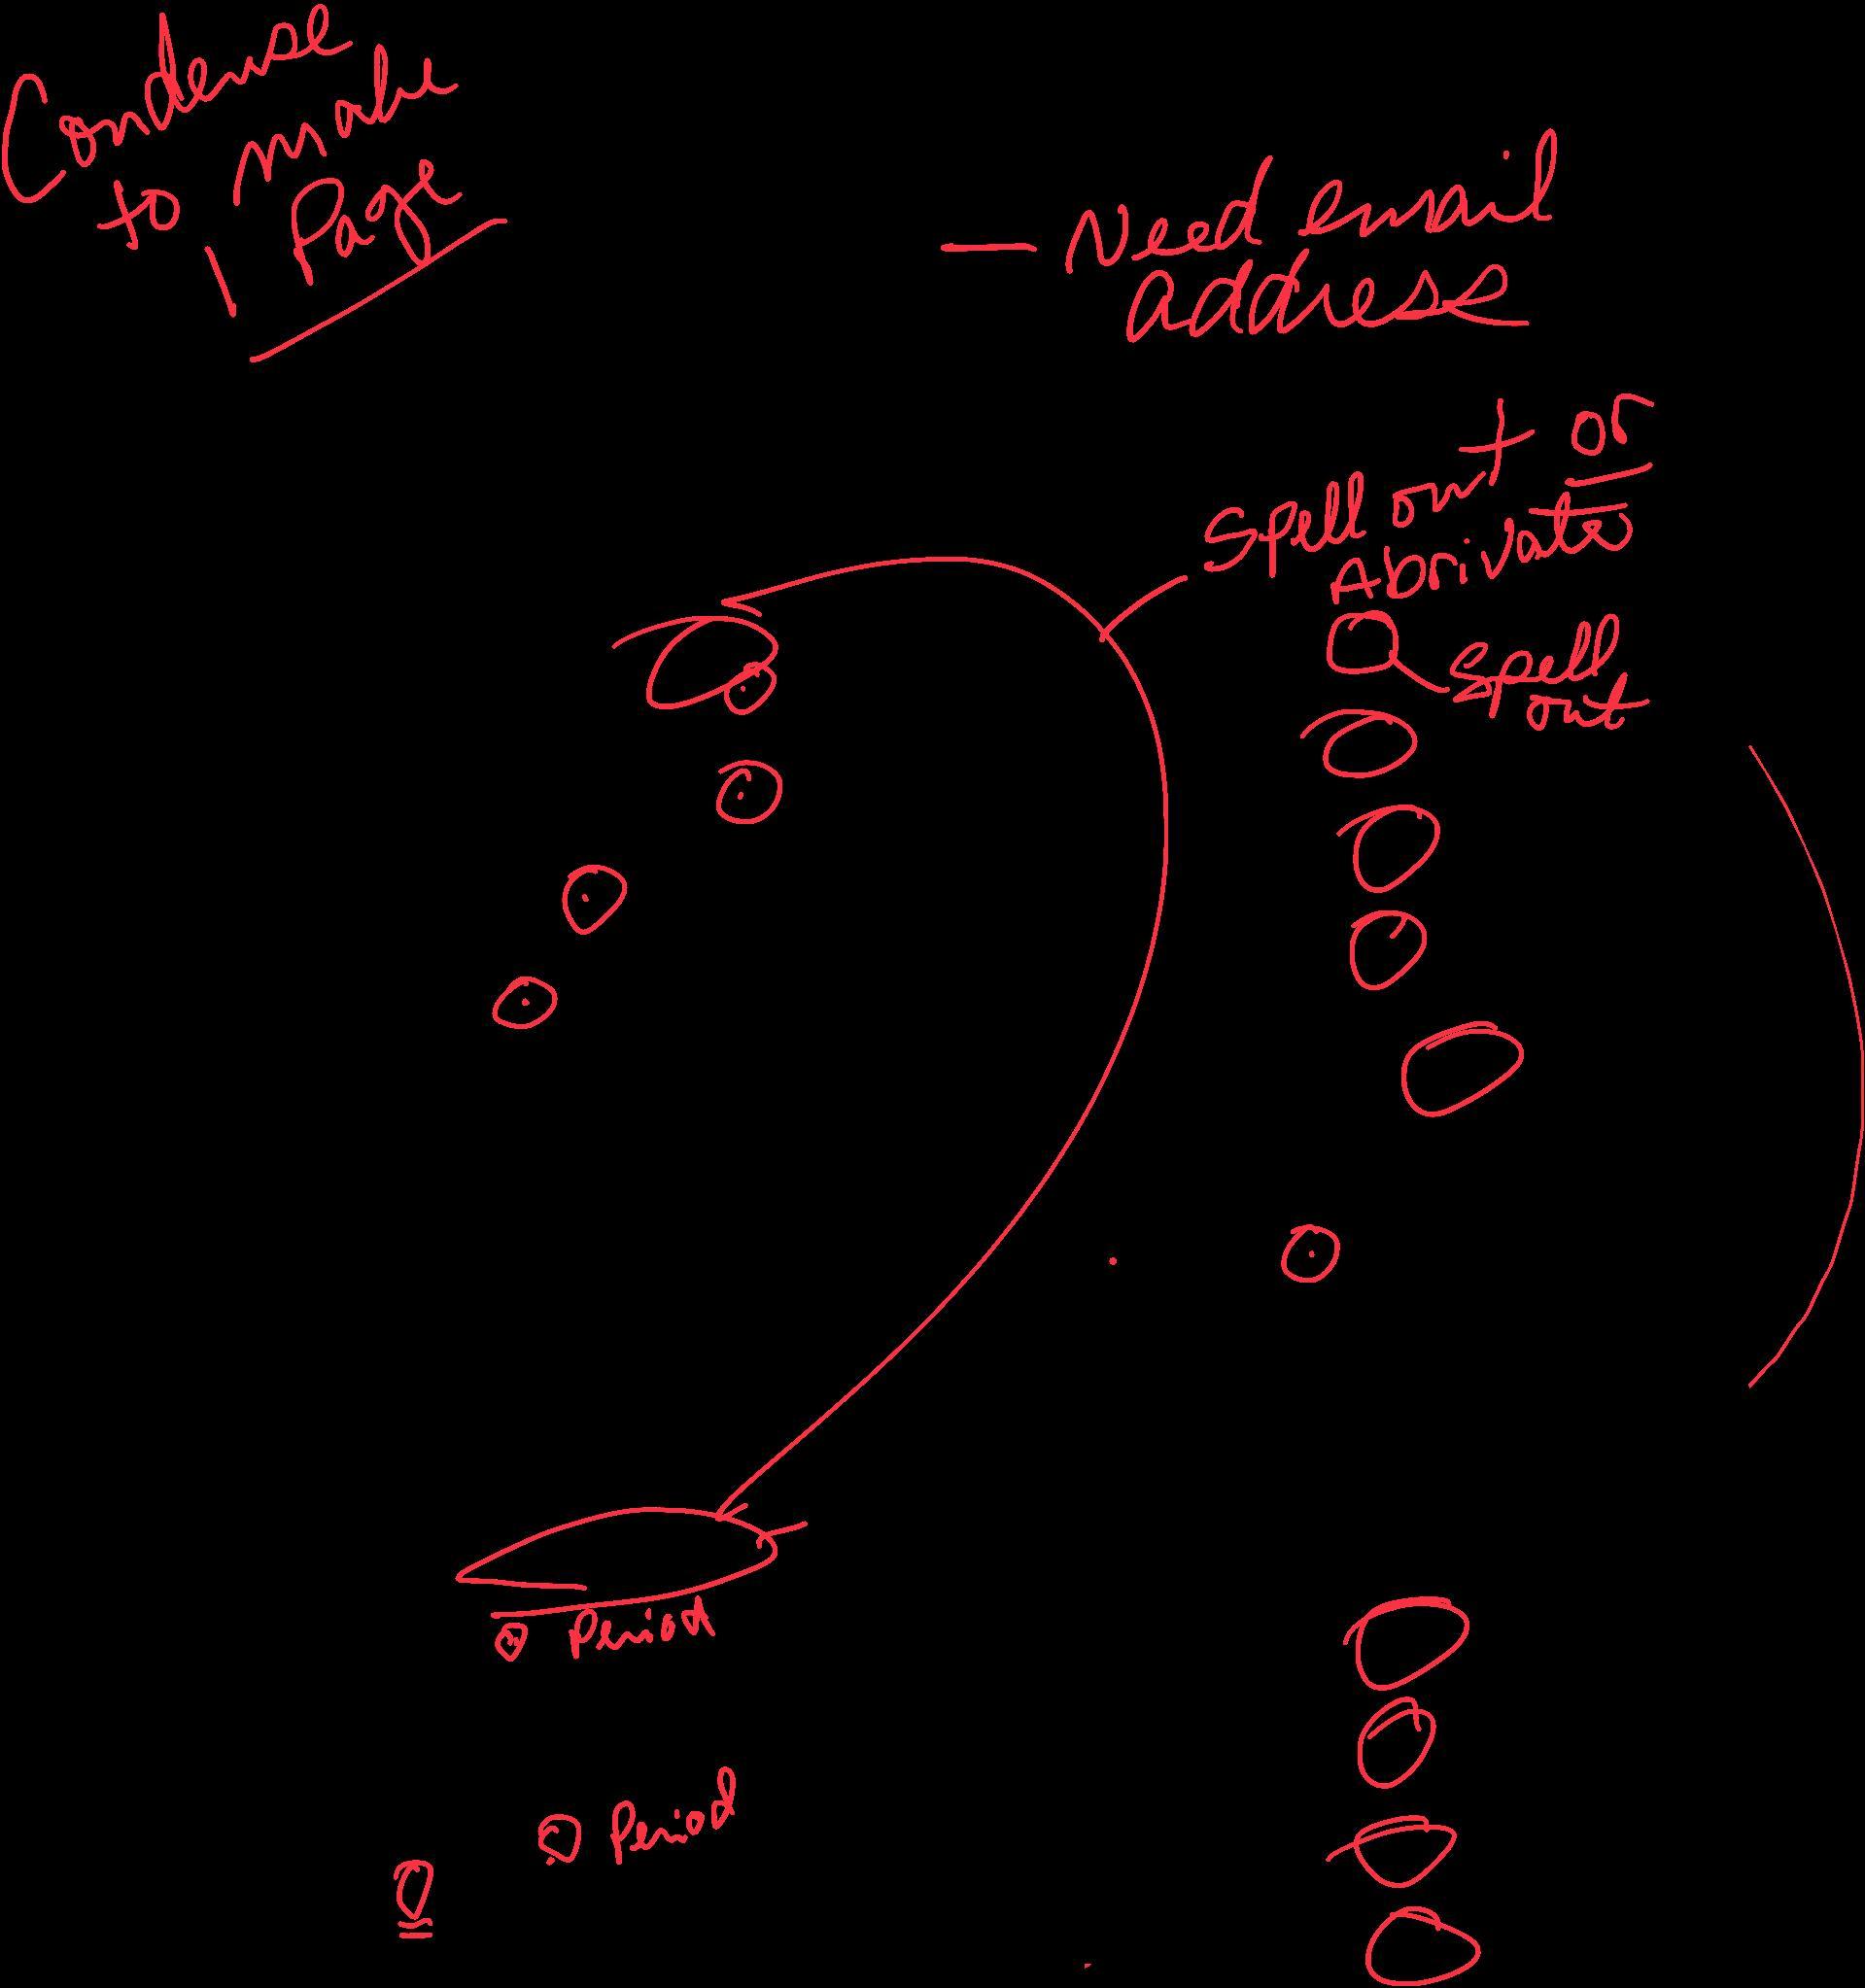 Condense
to make
1 Page
- Need email
address
Spell out or
Abrivate
Spell
out
Period
Period